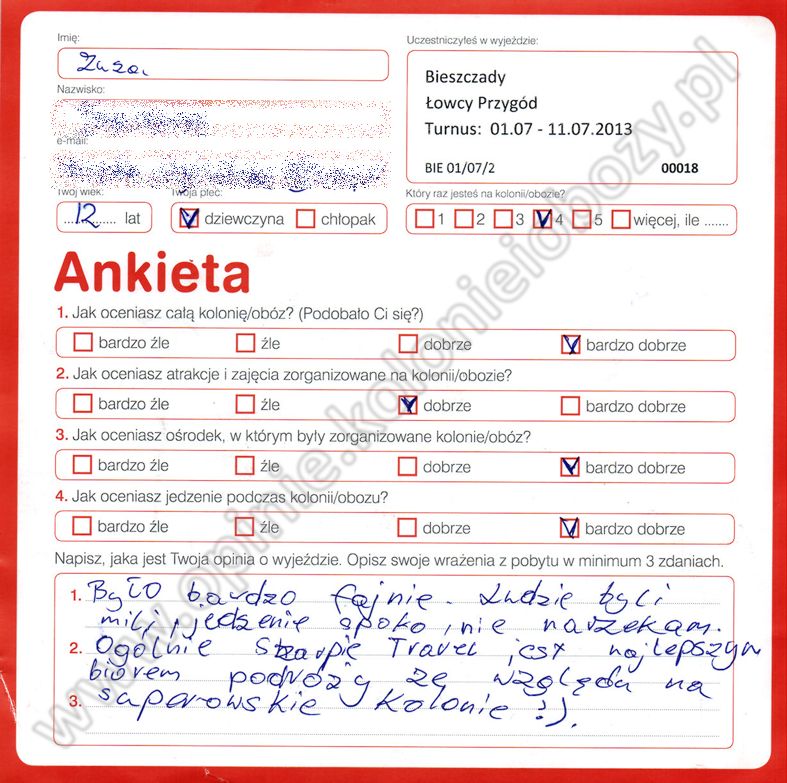 Imię:
Zuza
Uczestniczyłeś w wyjeździe:
Bieszczady
Łowcy Przygód
Turnus: 01.07 - 11.07.2013
BIE 01/07/2 00018
Nazwisko:
e-mail:
Twój wiek:
12 lat
Twoja płeć:
dziewczyna chłopak
Który raz jesteś na kolonii/obozie?
1 2 3 4 5 więcej, ile .......
Ankieta
1. Jak oceniasz całą kolonię/obóz? (Podobało Ci się?)
bardzo źle źle dobrze bardzo dobrze
2. Jak oceniasz atrakcje i zajęcia zorganizowane na kolonii/obozie?
bardzo źle źle dobrze bardzo dobrze
3. Jak oceniasz ośrodek, w którym były zorganizowane kolonie/obóz?
bardzo źle źle dobrze bardzo dobrze
4. Jak oceniasz jedzenie podczas kolonii/obozu?
bardzo źle źle dobrze bardzo dobrze
Napisz, jaka jest Twoja opinia o wyjeździe. Opisz swoje wrażenia z pobytu w minimum 3 zdaniach.
1. Było bardzo fajnie. Ludzie byli
mili, jedzenie spoko, nie narzekam.
2. Ogólnie Szarpie Travel jest najlepszym
biórem podróży ze względu na
3. saperowskie kolonie :).
www.opinie.kolonieiobozy.pl